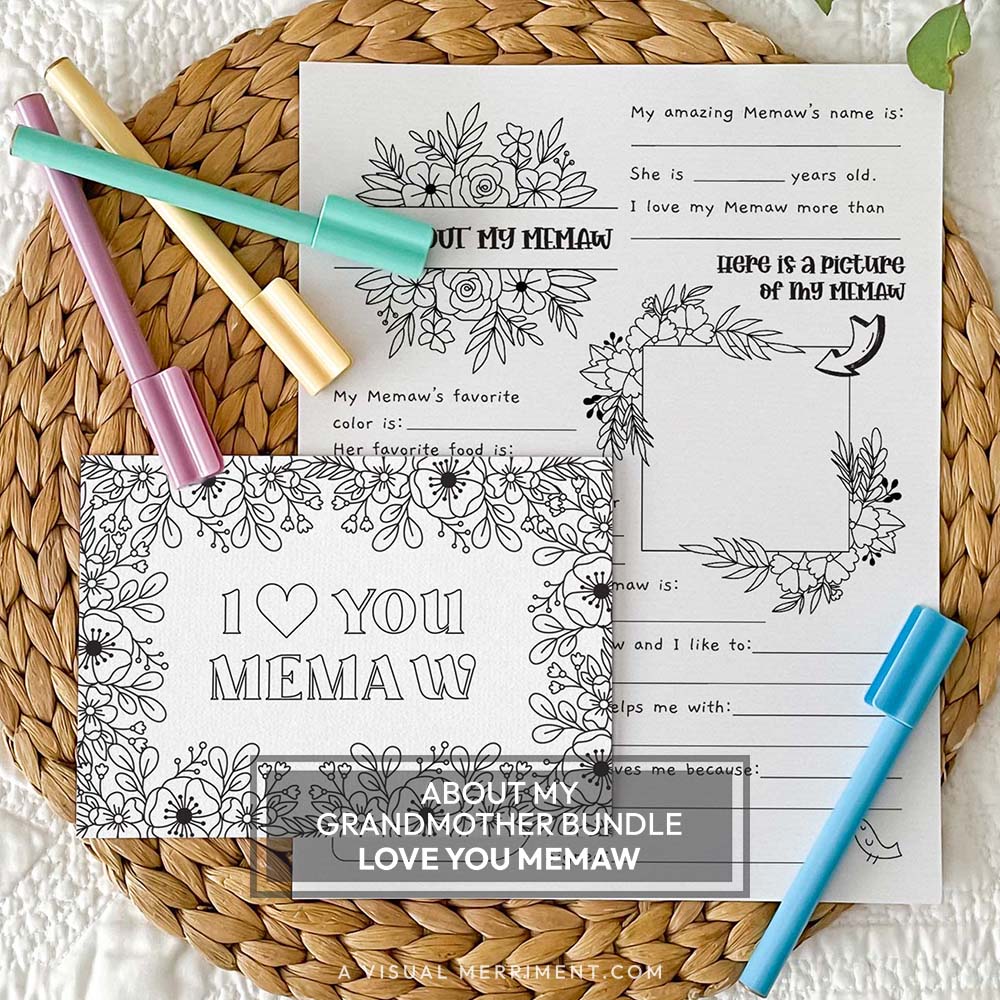 My amazing Memaw's name is:
She is years old.
I love my Memaw more than
MY MEMAW
Here is a picture
of my MEMAW
My Memaw's favorite
color is:
Her favorite food is:
is:
and I like to:
me with:
me because:
I ♡ YOU
MEMAW
ABOUT MY
GRANDMOTHER BUNDLE
LOVE YOU MEMAW
A VISUAL MERRIMENT.COM